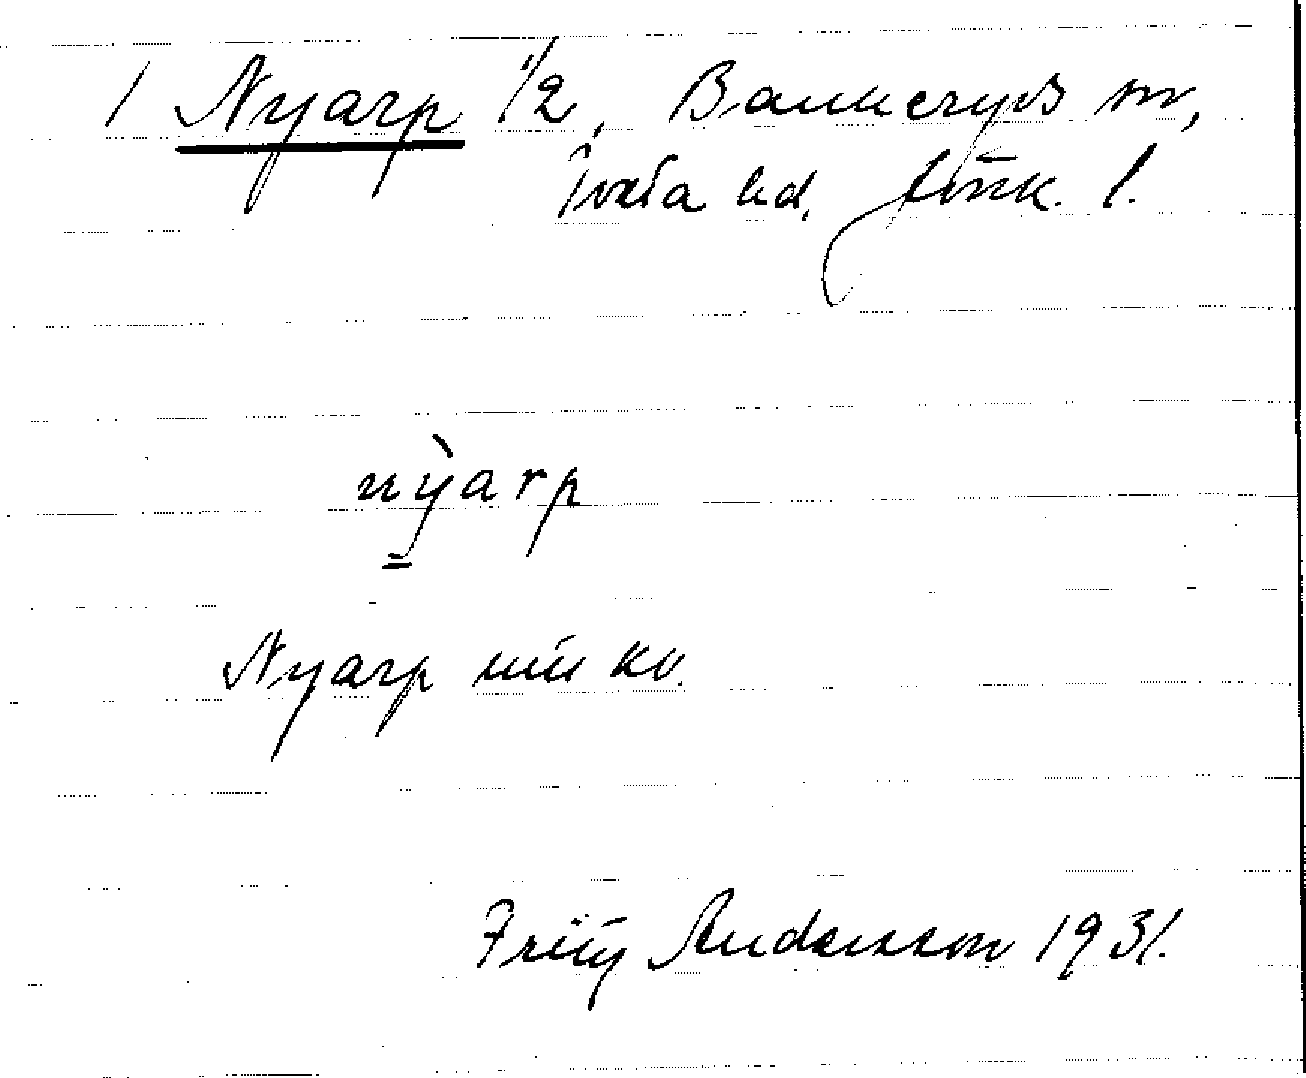 1 Nyarp 1/2, Bankeryds sn,
Tveta hd, Jönk. l.
nỳarp
Nyarp
Fritz Andersson 1931.